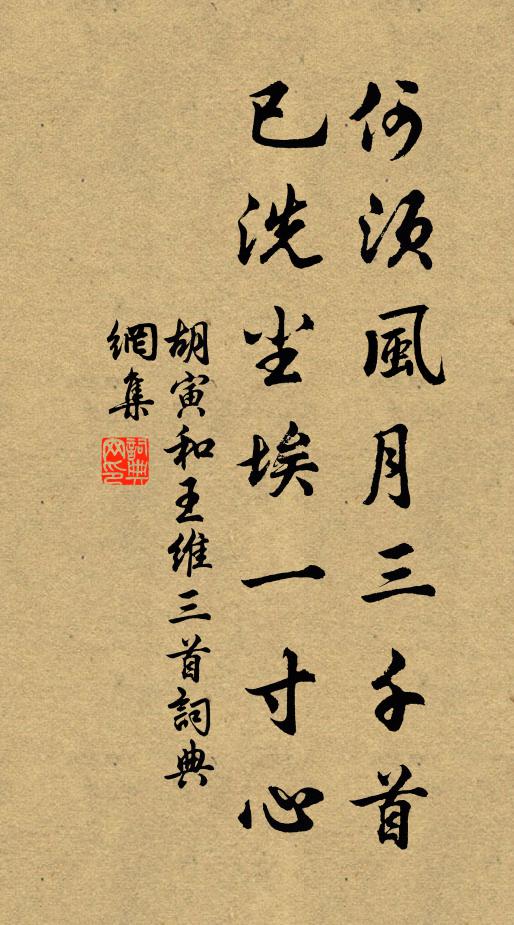 何须風月三千首
已洗尘埃一寸心
胡寅和王維三首詞典
網集
詞典
网印